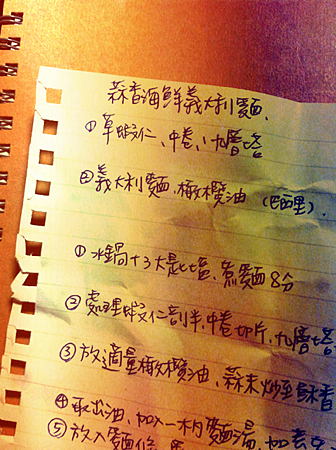 蒜香海鮮義大利麵、
①草蝦仁、中卷、九層塔
②義大利麵、橄欖油 (巴西里).
①水鍋+3大匙塩、煮麵8分
②處理蝦仁剖半,中卷切片,九層塔
③放適量橄欖油、蒜末炒至酥香
④取出油,加入一杓麵湯,加
⑤放入麵條